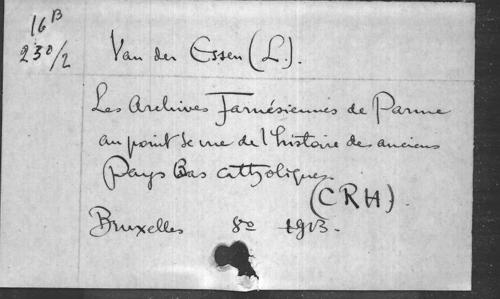 16 B
230/2
Van der Essen (L.).
Les Archives Farnésiennes de Parme
au point de vue de l'histoire des anciens
Pays Bas catholiques.
(CRH).
Bruxelles 8o 1913.